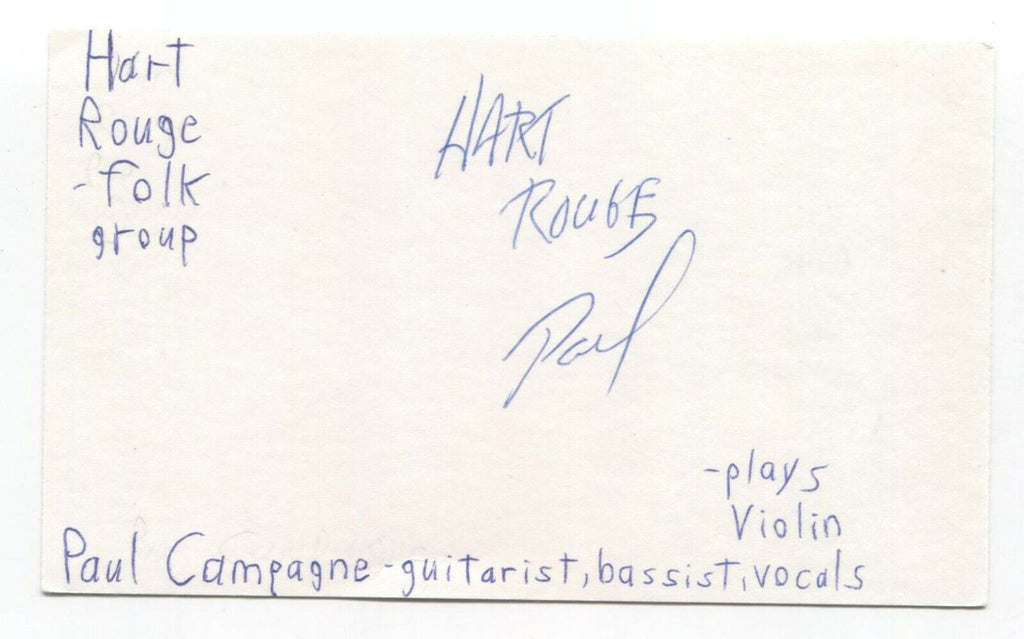 Hart
Rouge
- folk
group
HART
ROUGE
Paul
- plays
Violin
Paul Campagne - guitarist, bassist, vocals